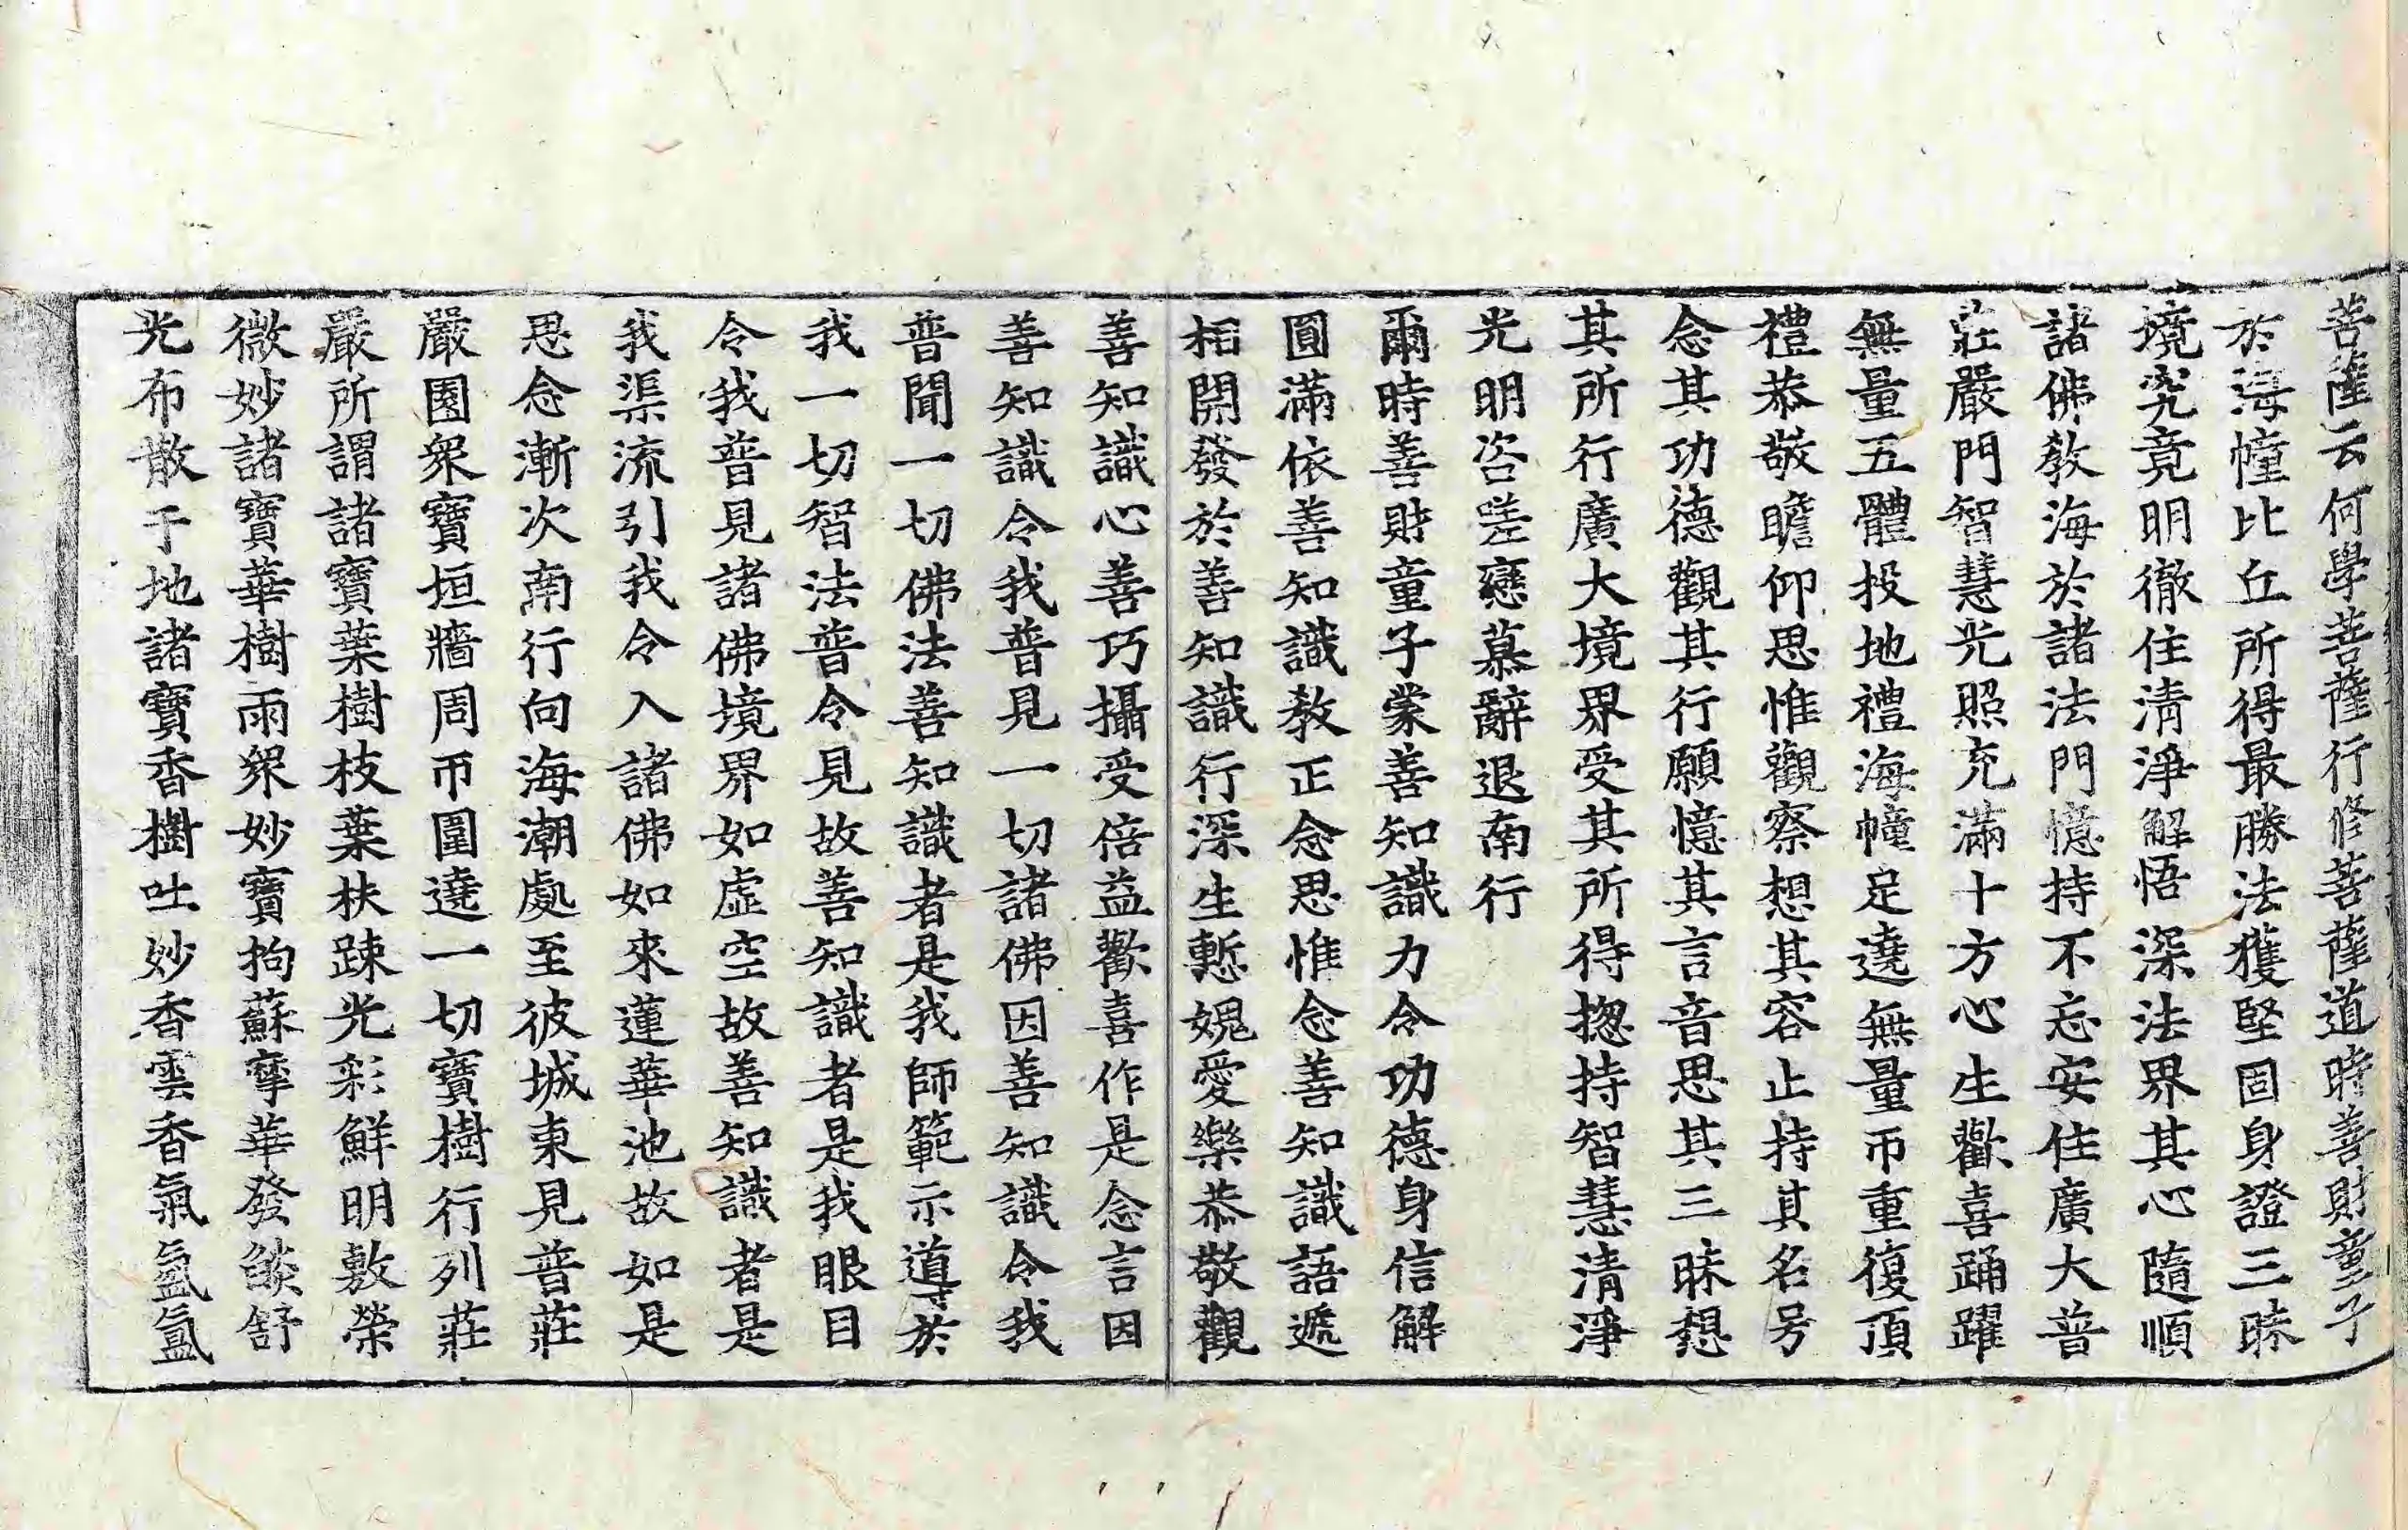 菩薩云何學菩薩行修菩薩道時善財童子
於海幢比丘所得最勝法獲堅固身證三昧
境究竟明徹住清淨解悟深法界其心隨順
諸佛教海於諸法門憶持不忘安住廣大普
莊嚴門智慧光照充滿十方心生歡喜踊躍
無量五體投地禮海幢足遶無量帀重復頂
禮恭敬瞻仰思惟觀察想其容止持其名号
念其功德觀其行願憶其言音思其三昧想
其所行廣大境界受其所得揔持智慧清淨
光明咨嗟戀慕辭退南行
爾時善財童子蒙善知識力令功德身信解
圓滿依善知識教正念思惟念善知識語遞
相開發於善知識行深生慙媿愛樂恭敬觀
善知識心善巧攝受倍益歡喜作是念言因
善知識令我普見一切諸佛因善知識令我
普聞一切佛法善知識者是我師範示導於
我一切智法普令見故善知識者是我眼目
令我普見諸佛境界如虛空故善知識者是
我渠流引我令入諸佛如來蓮華池故如是
思念漸次南行向海潮處至彼城東見普莊
嚴園衆寶垣牆周帀圍遶一切寶樹行列莊
嚴所謂諸寶葉樹枝葉扶踈光彩鮮明敷榮
微妙諸寶華樹雨衆妙寶拘蘇摩華發燄舒
光布散于地諸寶香樹吐妙香雲香氣氤氳